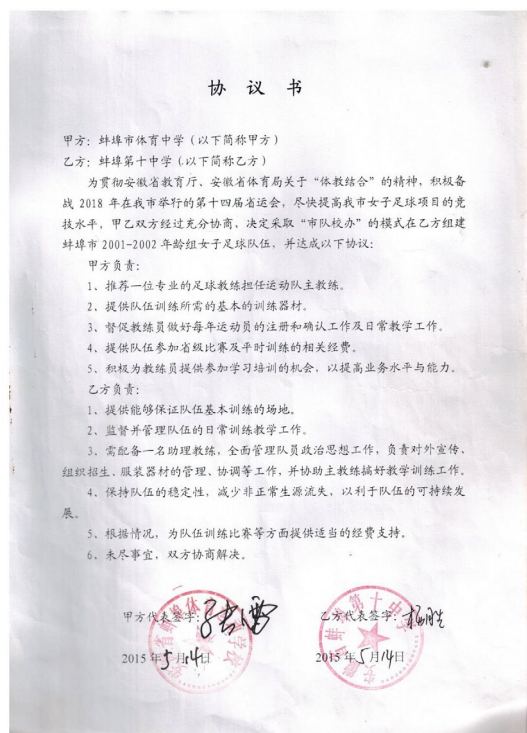 协 议 书
甲方：蚌埠市体育中学（以下简称甲方）
乙方：蚌埠第十中学（以下简称乙方）
为贯彻安徽省教育厅、安徽省体育局关于“体教结合”的精神，积极备
战 2018 年在我市举行的第十四届省运会，尽快提高我市女子足球项目的竞
技水平，甲乙双方经过充分协商，决定采取“市队校办”的模式在乙方组建
蚌埠市 2001-2002 年龄组女子足球队伍，并达成以下协议：
甲方负责：
1、推荐一位专业的足球教练担任运动队主教练。
2、提供队伍训练所需的基本的训练器材。
3、督促教练员做好每年运动员的注册和确认工作及日常教学工作。
4、提供队伍参加省级比赛及平时训练的相关经费。
5、积极为教练员提供参加学习培训的机会，以提高业务水平与能力。
乙方负责：
1、提供能够保证队伍基本训练的场地。
2、监督并管理队伍的日常训练教学工作。
3、需配备一名助理教练，全面管理队员政治思想工作，负责对外宣传、
组织招生、服装器材的管理、协调等工作，并协助主教练搞好教学训练工作。
4、保持队伍的稳定性，减少非正常生源流失，以利于队伍的可持续发
展。
5、根据情况，为队伍训练比赛等方面提供适当的经费支持。
6、未尽事宜，双方协商解决。
甲方代表签字： 乙方代表签字：
2015 年 5 月 14 日 2015 年 5 月 14 日
安徽省蚌埠第十中学